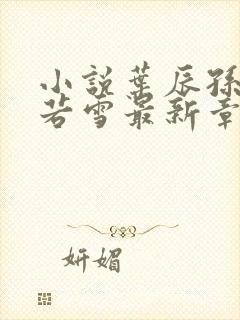 小說葉辰孫
若雪最新章
妍媚